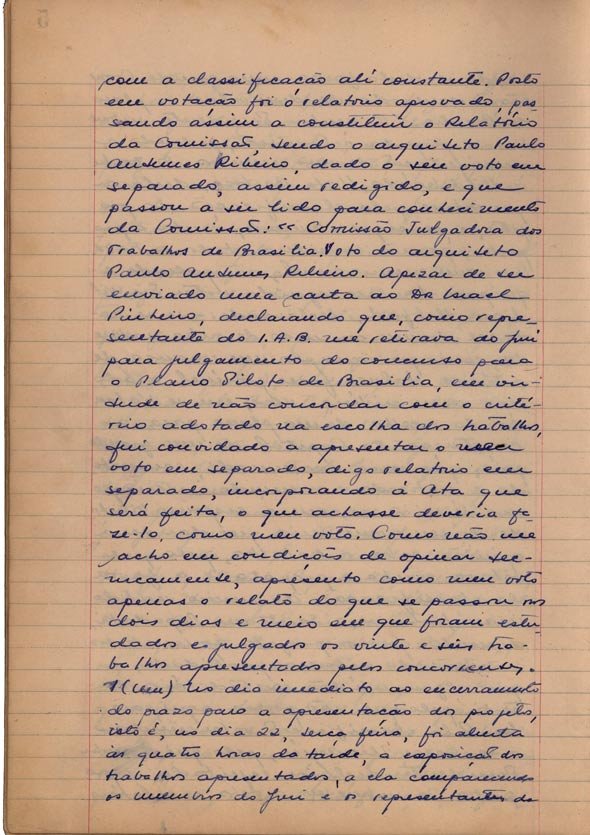 com a classificacão ali constante. Posto
em votacão foi o relatorio aprovado, pas-
sando assim a constituir o Relatório
da Comissão, sendo o arquiteto Paulo
Antunes Ribeiro, dado o seu voto em
separado, assim redigido, e que
passou a ser lido para conhecimento
da Comissão: "Comissão Julgadora dos
Trabalhos de Brasilia. Voto do arquiteto
Paulo Antunes Ribeiro. Apezar de ter
enviado uma carta ao Dr Israel
Pinheiro, declarando que, como repre-
sentante do I.A.B. me retirava do Juri
para julgamento do concurso para
o Plano Piloto de Brasilia, em vir-
tude de não concordar com o crité-
rio adotado na escolha dos trabalhos,
fui convidado a apresentar o meu
voto em separado, digo relatorio em
separado, incorporando á Ata que
será feita, o que achasse deveria fa-
ze-lo, como meu voto. Como não me
acho em condicões de opinar tec-
nicamente, apresento como meu voto
apenas o relato do que se passou nos
dois dias e meio em que foram estu-
dados e julgados os vinte e seis tra-
balhos apresentados pelos concorrentes.
1 (um) No dia imediato ao encerramento
do prazo para a apresentacão dos projetos,
isto é, no dia 22, terça feira, foi aberta
às quatro horas da tarde, a exposicão dos
trabalhos apresentados, a ela comparecendo
os membros do Juri e os representantes de